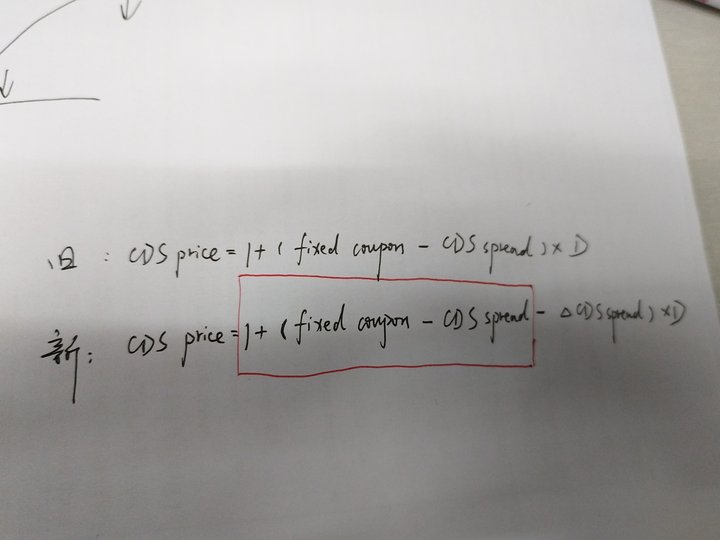 旧：CDS price = 1+（fixed coupon - CDS spread）× D
新：CDS price = 1+（fixed coupon - CDS spread - △CDS spread）×D